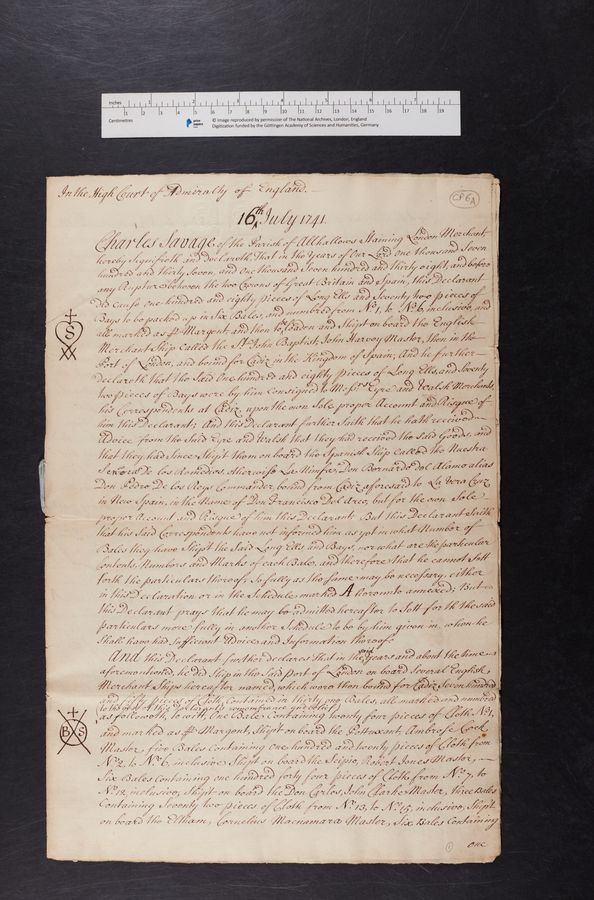 Inches 1 2 3 4 5 6 7
Centimetres 1 2 3 4 5 6 7 8 9 10 11 12 13 14 15 16 17 18 19
© Image reproduced by permission of The National Archives, London, England
Digitization funded by the Göttingen Academy of Sciences and Humanities, Germany
In the High Court of Admiralty of England.
CP6A
16th July 1741.
Charles Savage of the Parish of Allhallows Staining London Merchant
hereby Signifieth and Declareth That in the Years of Our Lord One thousand Seven
hundred and thirty Seven, and One thousand Seven hundred and thirty eight, and before
any Rupture between the two Crowns of Great Britain and Spain, this Declarant
Did cause one hundred and eighty pieces of Long Ells and Seventy two pieces of
Bays to be packed up in Six Bales, and numbred from No. 1, to No. 6, inclusive, and
all marked as pr Margent and then to be Loaden and Shipt on board the English
S
Merchant Ship called the St. John Baptist, John Harvey Master, then in the
Port of London, and bound for Cadiz in the Kingdom of Spain; And he further
declareth that the said One hundred and eighty pieces of Long Ells, and Seventy
two pieces of Bays were by him consigned to Mess.rs Eyre and Walsh Merchants,
his Correspondents at Cadiz, upon the own Sole proper Account and Risque of
him this Declarant; And this Declarant further Saith that he hath received
Advice from the Said Eyre and Walsh that they had received the said Goods, and
that they had Since Shipt them on board the Spanish Ship called the Nuestra
Senora De los Remedios, otherwise La Nimfa, Don Bernardo Del Alamo alias
Don Pedro De los Reys Commander, bound from Cadiz aforesaid to La Vera Cruz
in New Spain, in the Name of Don Francisco Del Arco, but for the own Sole
proper Account and Risque of him this Declarant; But this Declarant Saith
that his Said Correspondents have not informed him as yet in what Number of
Bales they have Shipt the Said Long Ells and Bays, nor what are the particular
Contents, Numbers and Marks of each Bale, and therefore that he cannot Sett
forth the particulars thereof So fully as the Same may be necessary, either
in this Declaration or in the Schedule marked A hereunto annexed; But
this Declarant prays that he may be admitted hereafter to Sett forth the said
particulars more fully in another Schedule to be by him given in, when he
Shall have had Sufficient Advice and Information thereof
And this Declarant further declares that in the said Years and about the time
aforementioned, he did Ship in the Said Port of London on board Several English
Merchant Ships hereafter named, which were then bound for Cadiz Seven hundred
and pieces of Cloth, Contained in thirty one Bales, all marked and numbred
as followeth, to wit, One Bale Containing twenty four pieces of Cloth No. 1,
B S
and marked as pr Margent, Shipt on board the Patuxent, Ambrose Cock
Master, five Bales Containing one hundred and twenty pieces of Cloth from
No. 2, to No. 6, inclusive Shipt on board the Scipio, Robert Jones Master,
Six Bales Containing one hundred forty four pieces of Cloth from No. 7, to
No. 12, inclusive, Shipt on board the Don Carlos, John Clarke Master, three Bales
Containing Seventy two pieces of Cloth from No. 13, to No. 15, inclusive, Shipt
on board the Eltham, Cornelius Macnamara Master, Six Bales Containing
one
1